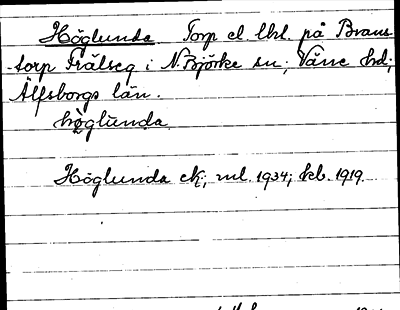 Höglunda. Torp el. lkl. på Brans
-torp Frälseg i N. Björke sn; Väne hd;
Älfsborgs län.
höglunda.
Höglunda ek; ml. 1934; kb. 1919.